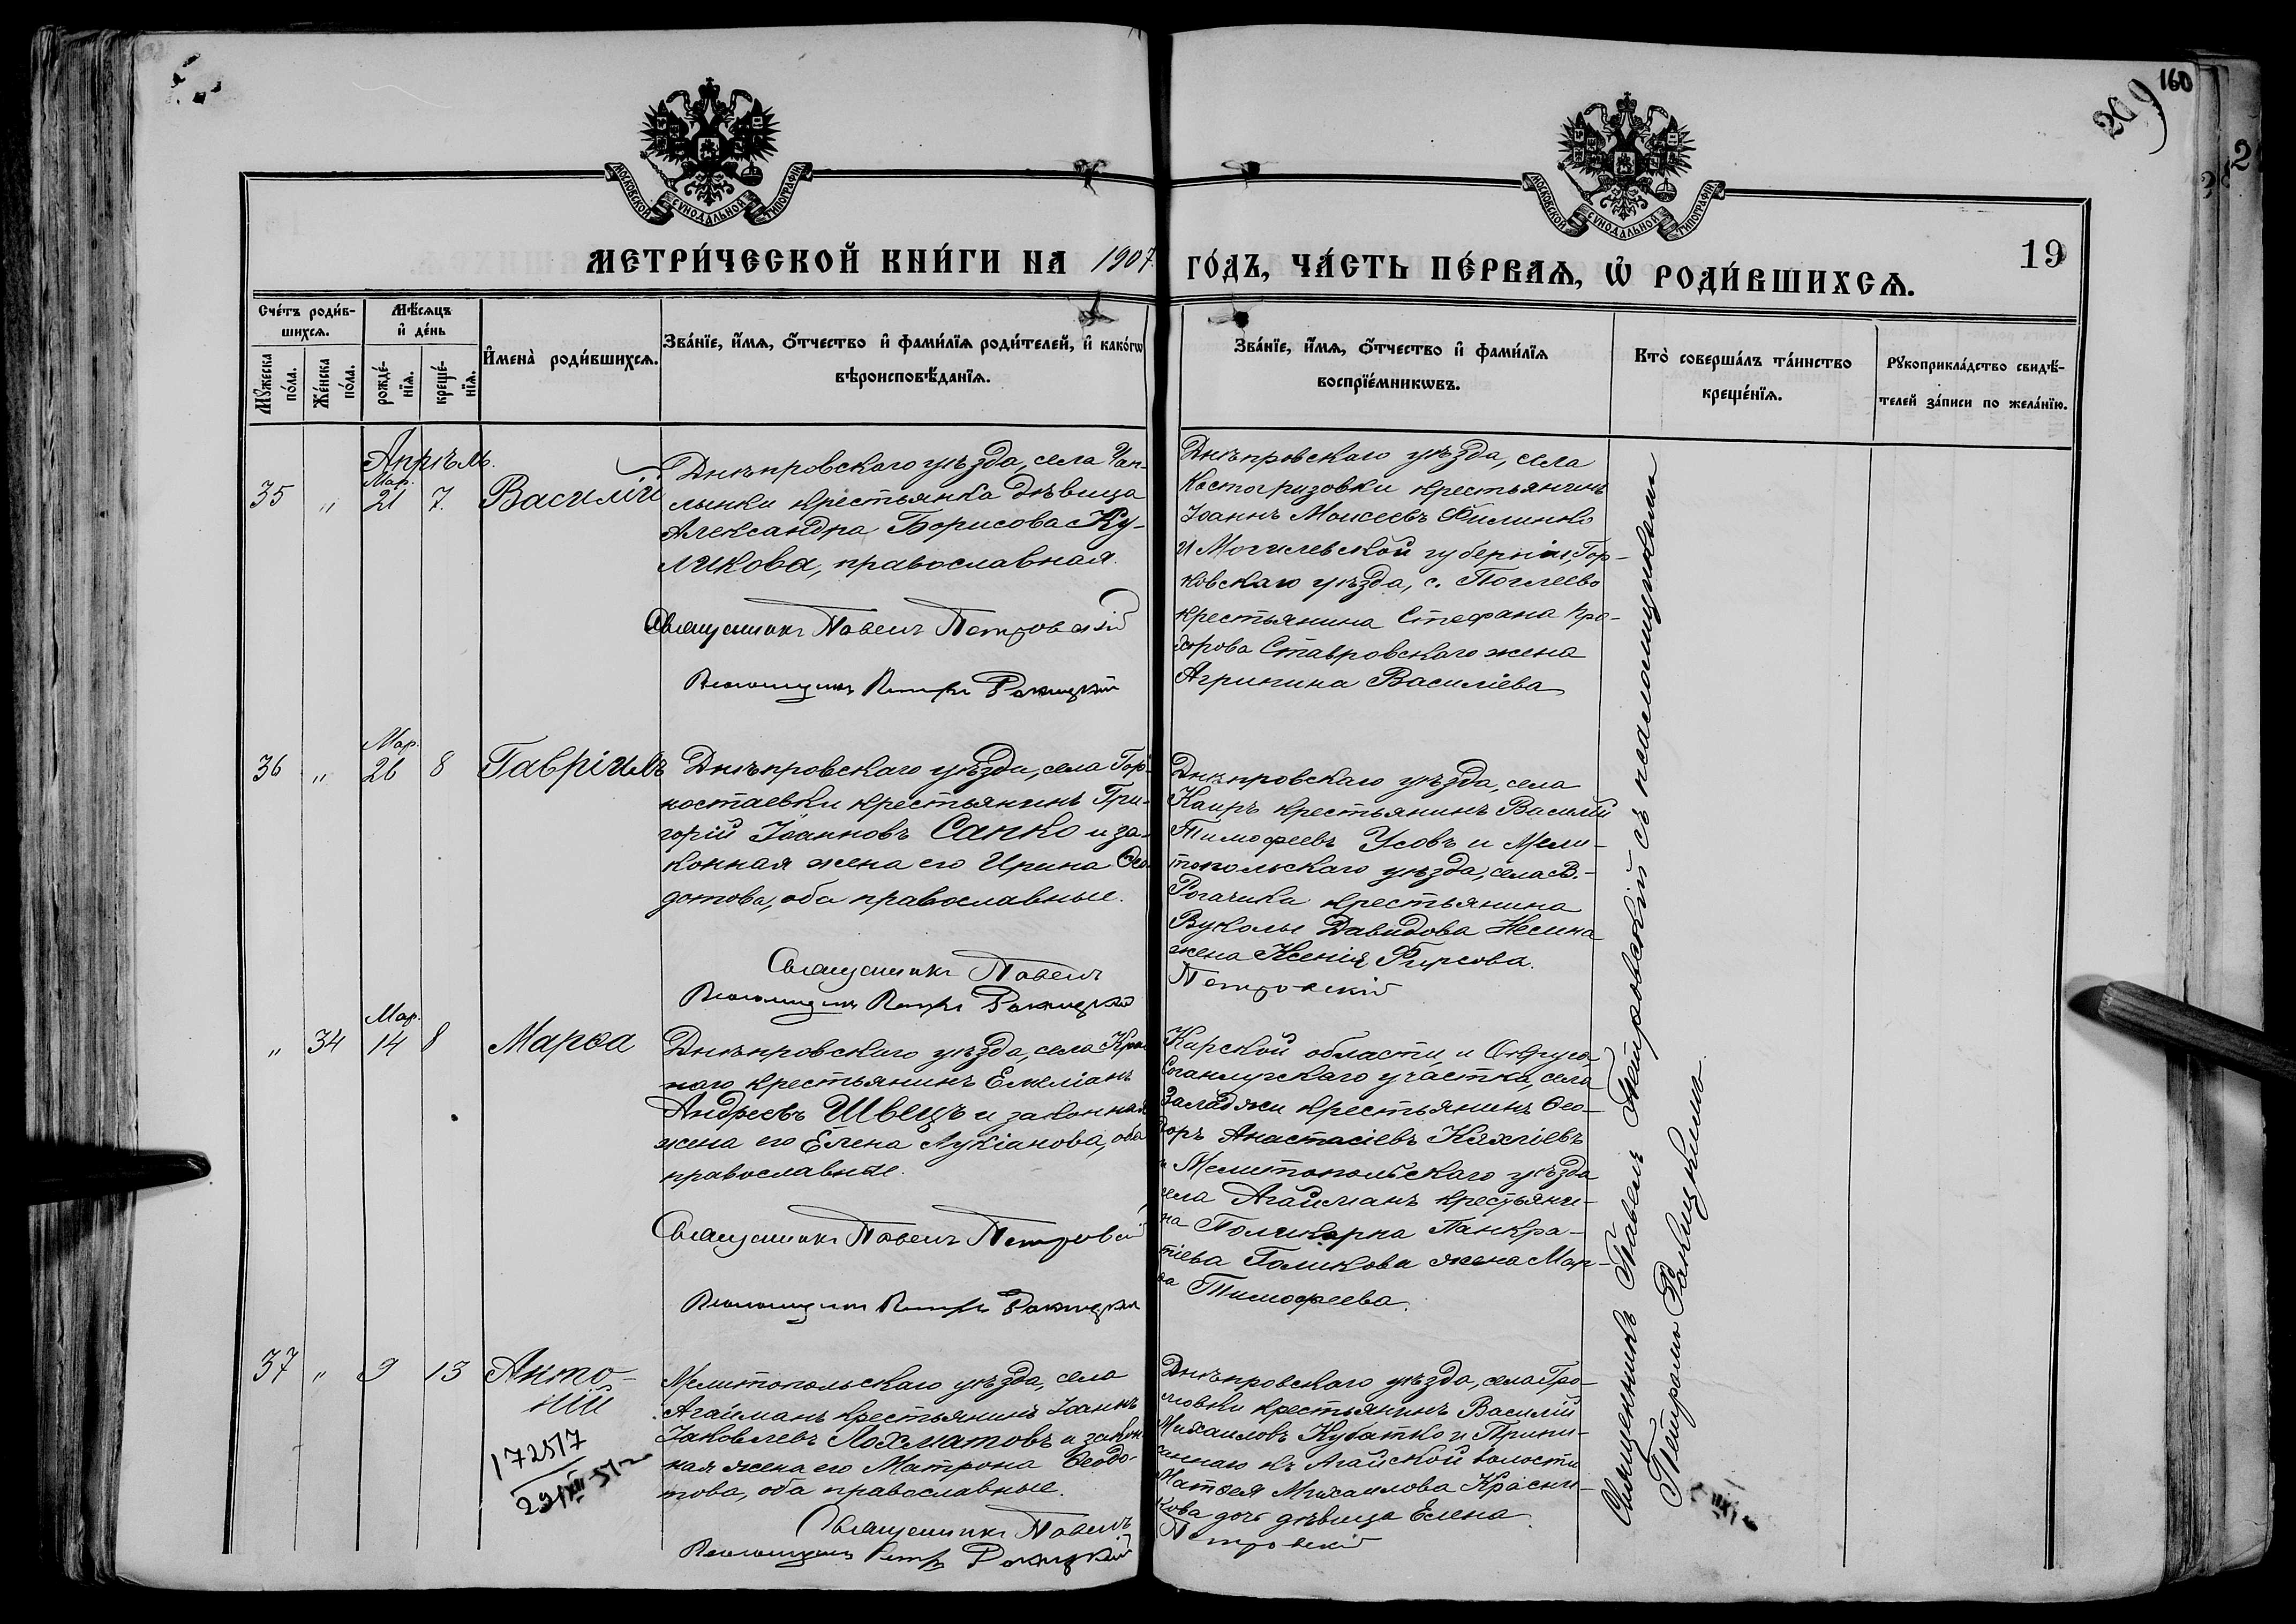 160
209
МОСКОВСКОЙ СѴНОДАЛЬНОЙ ТИПОГРАФІИ
МОСКОВСКОЙ СѴНОДАЛЬНОЙ ТИПОГРАФІИ
МЕТРИ́ЧЕСКОЙ КНИ́ГИ НА 1907. ГО́ДЪ, ЧА́СТЬ ПЕ́РВАѦ, Ѡ҆ РОДИ́ВШИХСѦ.
19
Сче́тъ роди́в-
шихсѧ.
Мꙋ́жеска по́ла.
Же́нска по́ла.
Мѣ́сѧцъ
и҆ де́нь
рожде́-
нїѧ.
креще́-
нїѧ.
И҆мена̀ роди́вшихсѧ.
Зва́нїе, и҆́мѧ, ѻ҆́тчество и҆ фами́лїѧ роди́телей, и҆ како́гѡ
вѣроисповѣ́данїѧ.
Зва́нїе, и҆́мѧ, ѻ҆́тчество и҆ фами́лїѧ
воспрїе́мникѡвъ.
Кто̀ соверша́лъ та́инство
креще́нїѧ.
Рꙋкоприкла́дство свидѣ́-
телей за́писи по жела́нїю.
Апрѣль.
Мар.
35 " 21 7. Василій
Днѣпровскаго уѣзда, села Чап-
лынки крестьянка дѣвица
Александра Борисова Ку-
ликова, православная.
Священникъ Павелъ Петровскій
Псаломщикъ Петръ Ракицкій
Днѣпровскаго уѣзда, села
Костогризовки крестьянинъ
Іоаннъ Моисеевъ Филинко
и Могилевской губерніи, Гор-
ковскаго уѣзда, с.
крестьянина Стефана Про-
хорова Ставровскаго жена
Агрипина Василіева
Мар.
36 " 26 8 Гавріилъ
Днѣпровскаго уѣзда, села Гор-
ностаевки крестьянинъ Гри-
горій Іоанновъ Сапко и за-
конная жена его Ирина Ѳео-
дотова, оба православные.
Священникъ Павелъ Петровскій
Псаломщикъ Петръ Ракицкій
Днѣпровскаго уѣзда, села
Каиръ крестьянинъ Василій
Тимофеевъ Усовъ и Мели-
топольскаго уѣзда, села В.-
Рогачика крестьянина
Вуколы Давидова Несина
жена Ксенія Фирсова.
Мар.
" 34 14 8 Марѳа
Днѣпровскаго уѣзда, села
крестьянинъ Емеліанъ
Андреевъ Швецъ и законная
жена его Елена Лукіанова, оба
православные.
Священникъ Павелъ Петровскій
Псаломщикъ Петръ Ракицкій
Карской области и Округа,
Соганлугскаго участка, села
крестьянинъ Ѳео-
доръ Анастасіевъ
и Мелитопольскаго уѣзда
села Агайманъ крестьяни-
на Поликарпа Панкра-
тіева Голикова жена Мар-
ѳа Тимофеева.
37 " 9 13 Анто-
ній
172517
29/XII 51 г
Мелитопольскаго уѣзда, села
Агайманъ крестьянинъ Іоаннъ
Іаковлевъ Лохматовъ и закон-
ная жена его Матрона Ѳеодо-
това, оба православные.
Священникъ Павелъ Петровскій
Псаломщикъ Петръ Ракицкій
Днѣпровскаго уѣзда, села
крестьянинъ Василій
Михаиловъ Кубатко и Припи-
саннаго къ Агайской волости
Матѳея Михаилова Красни-
кова дочь дѣвица Елена
Священникъ Павелъ Петровскій съ псаломщикомъ
Петромъ Ракицкимъ.